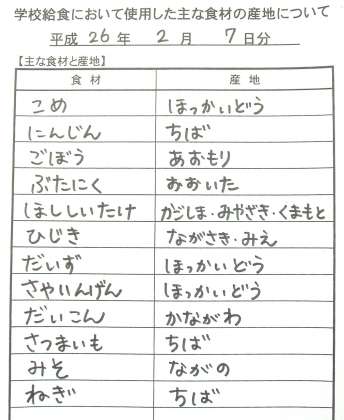 学校給食において使用した主な食材の産地について
平成 26 年 2 月 7 日分
【主な食材と産地】
食材 産地
こめ ほっかいどう
にんじん ちば
ごぼう あおもり
ぶたにく おおいた
ほししいたけ かごしま・みやざき・くまもと
ひじき ながさき・みえ
だいず ほっかいどう
さやいんげん ほっかいどう
だいこん かながわ
さつまいも ちば
みそ ながの
ねぎ ちば